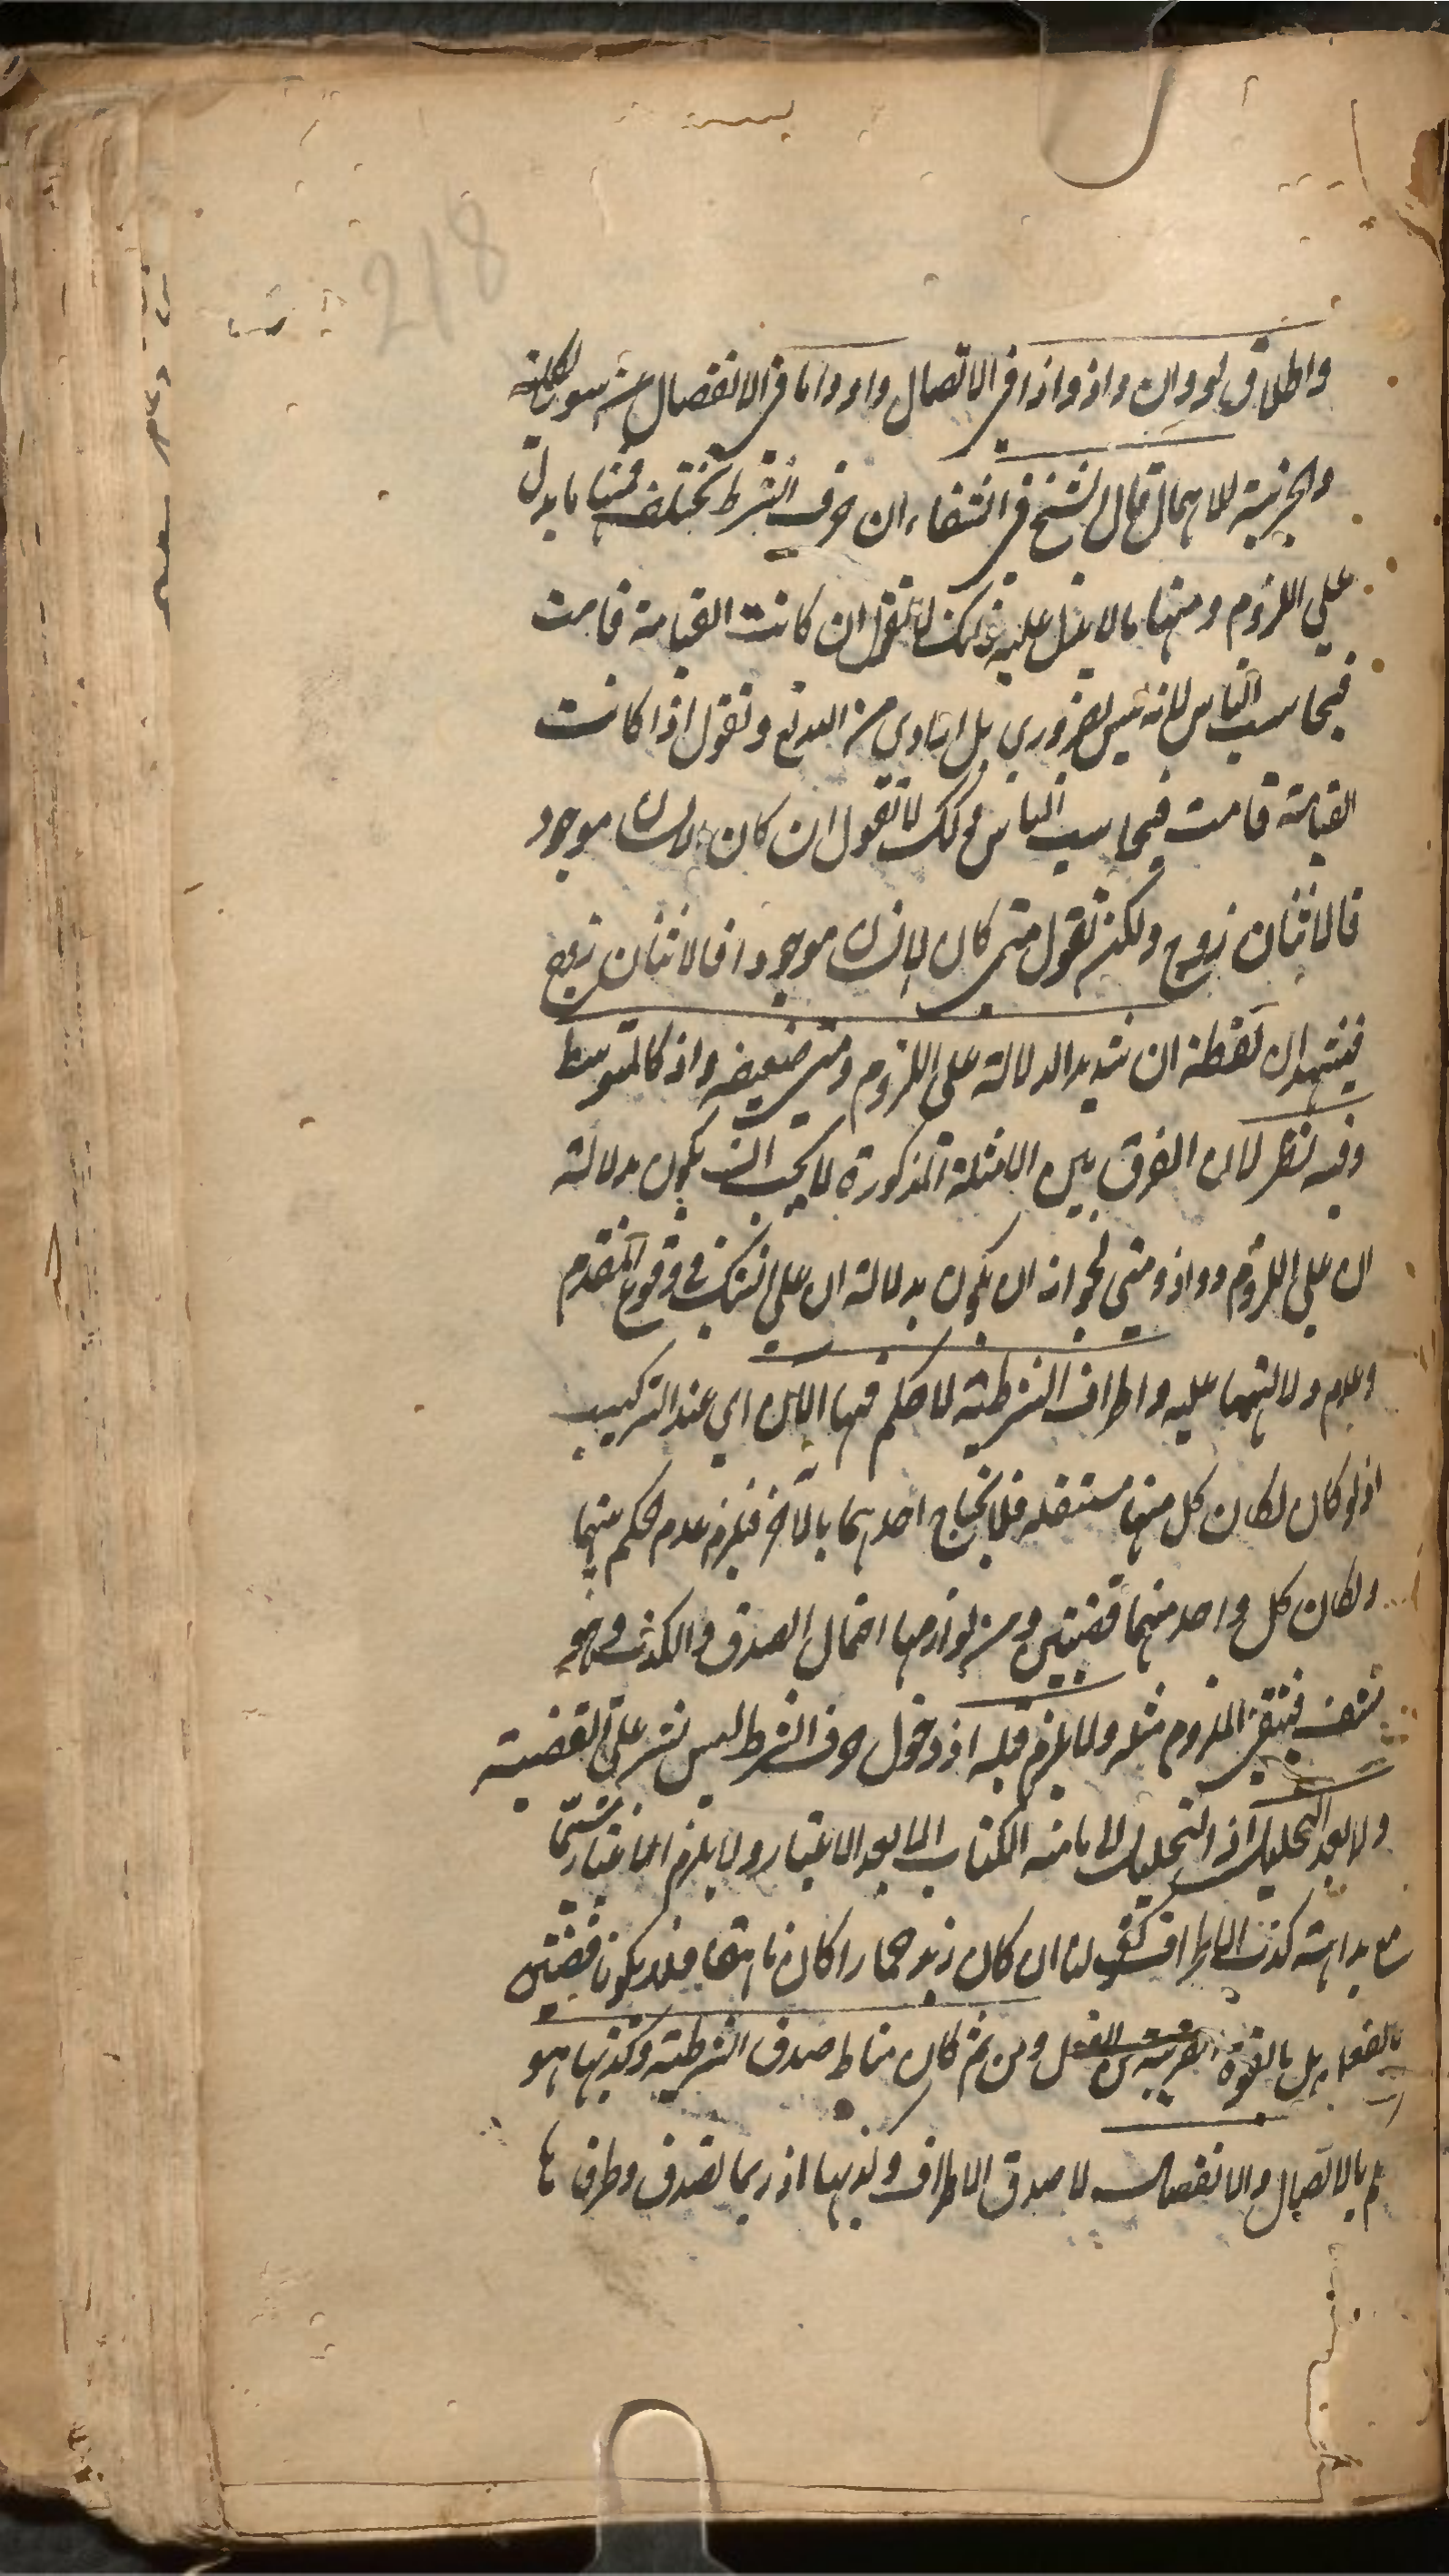 218
واطلاق لو وان واذ واذا في الاتصال واو واما في الانفصال عن سور الكلية
والجزئية للاهمال قال الشيخ في الشفاء ان حرف الشرط تختلف فمنها ما يدل
على اللزوم ومنها ما لا يدل عليه فانك لا تقول ان كانت القيامة قامت
فيحاسب الناس لانه ليس بضروري بل ارادي من المبدع وتقول اذا كانت
القيامة قامت فيحاسب الناس وكذلك لا تقول ان كان الانسان موجود
فالاثنان زوج ولكن تقول متى كان الانسان موجودا فالاثنان زوج
فيشهد ان لفظة ان شديد الدلالة على اللزوم ومتى ضعيفه واذ كالمتوسط
وفيه نظر لان الفرق بين الامثلة المذكورة لا يجب ان يكون بدلالة
ان على اللزوم دون اذ ومتى لجواز ان يكون بدلالة ان على الشك في وقوع المقدم
وعدم دلالتهما عليه واطراف الشرطية لا حكم فيها الآن اي عند التركيب
اذ لو كان لكان كل منها مستقله فلا يحتاج احدهما بالآخر فيلزم عدم حكم بينهما
ولكان كل واحد منهما قضيتين ومن لوازمها احتمال الصدق والكذب وهو
منتف فينتفي الملزوم مثله ولا يلزم قبله اذ دخول حرف الشرط ليس بشرط على القضية
ولا بعد التحليل اذ التحليل الى ما منه الكتاب الا بعد الاعتبار ولا يلزم الاعتبار
مع بداهة كذب الاطراف كقولنا ان كان زيد حمارا كان ناهقا فلا يكونا قضيتين
بالفعل بل بالقوة القريبة من الفعل ومن ثم كان مناط صدق الشرطية وكذبها هو
الحكم بالاتصال والانفصال لا صدق الاطراف وكذبها اذ ربما تصدق وطرفاها